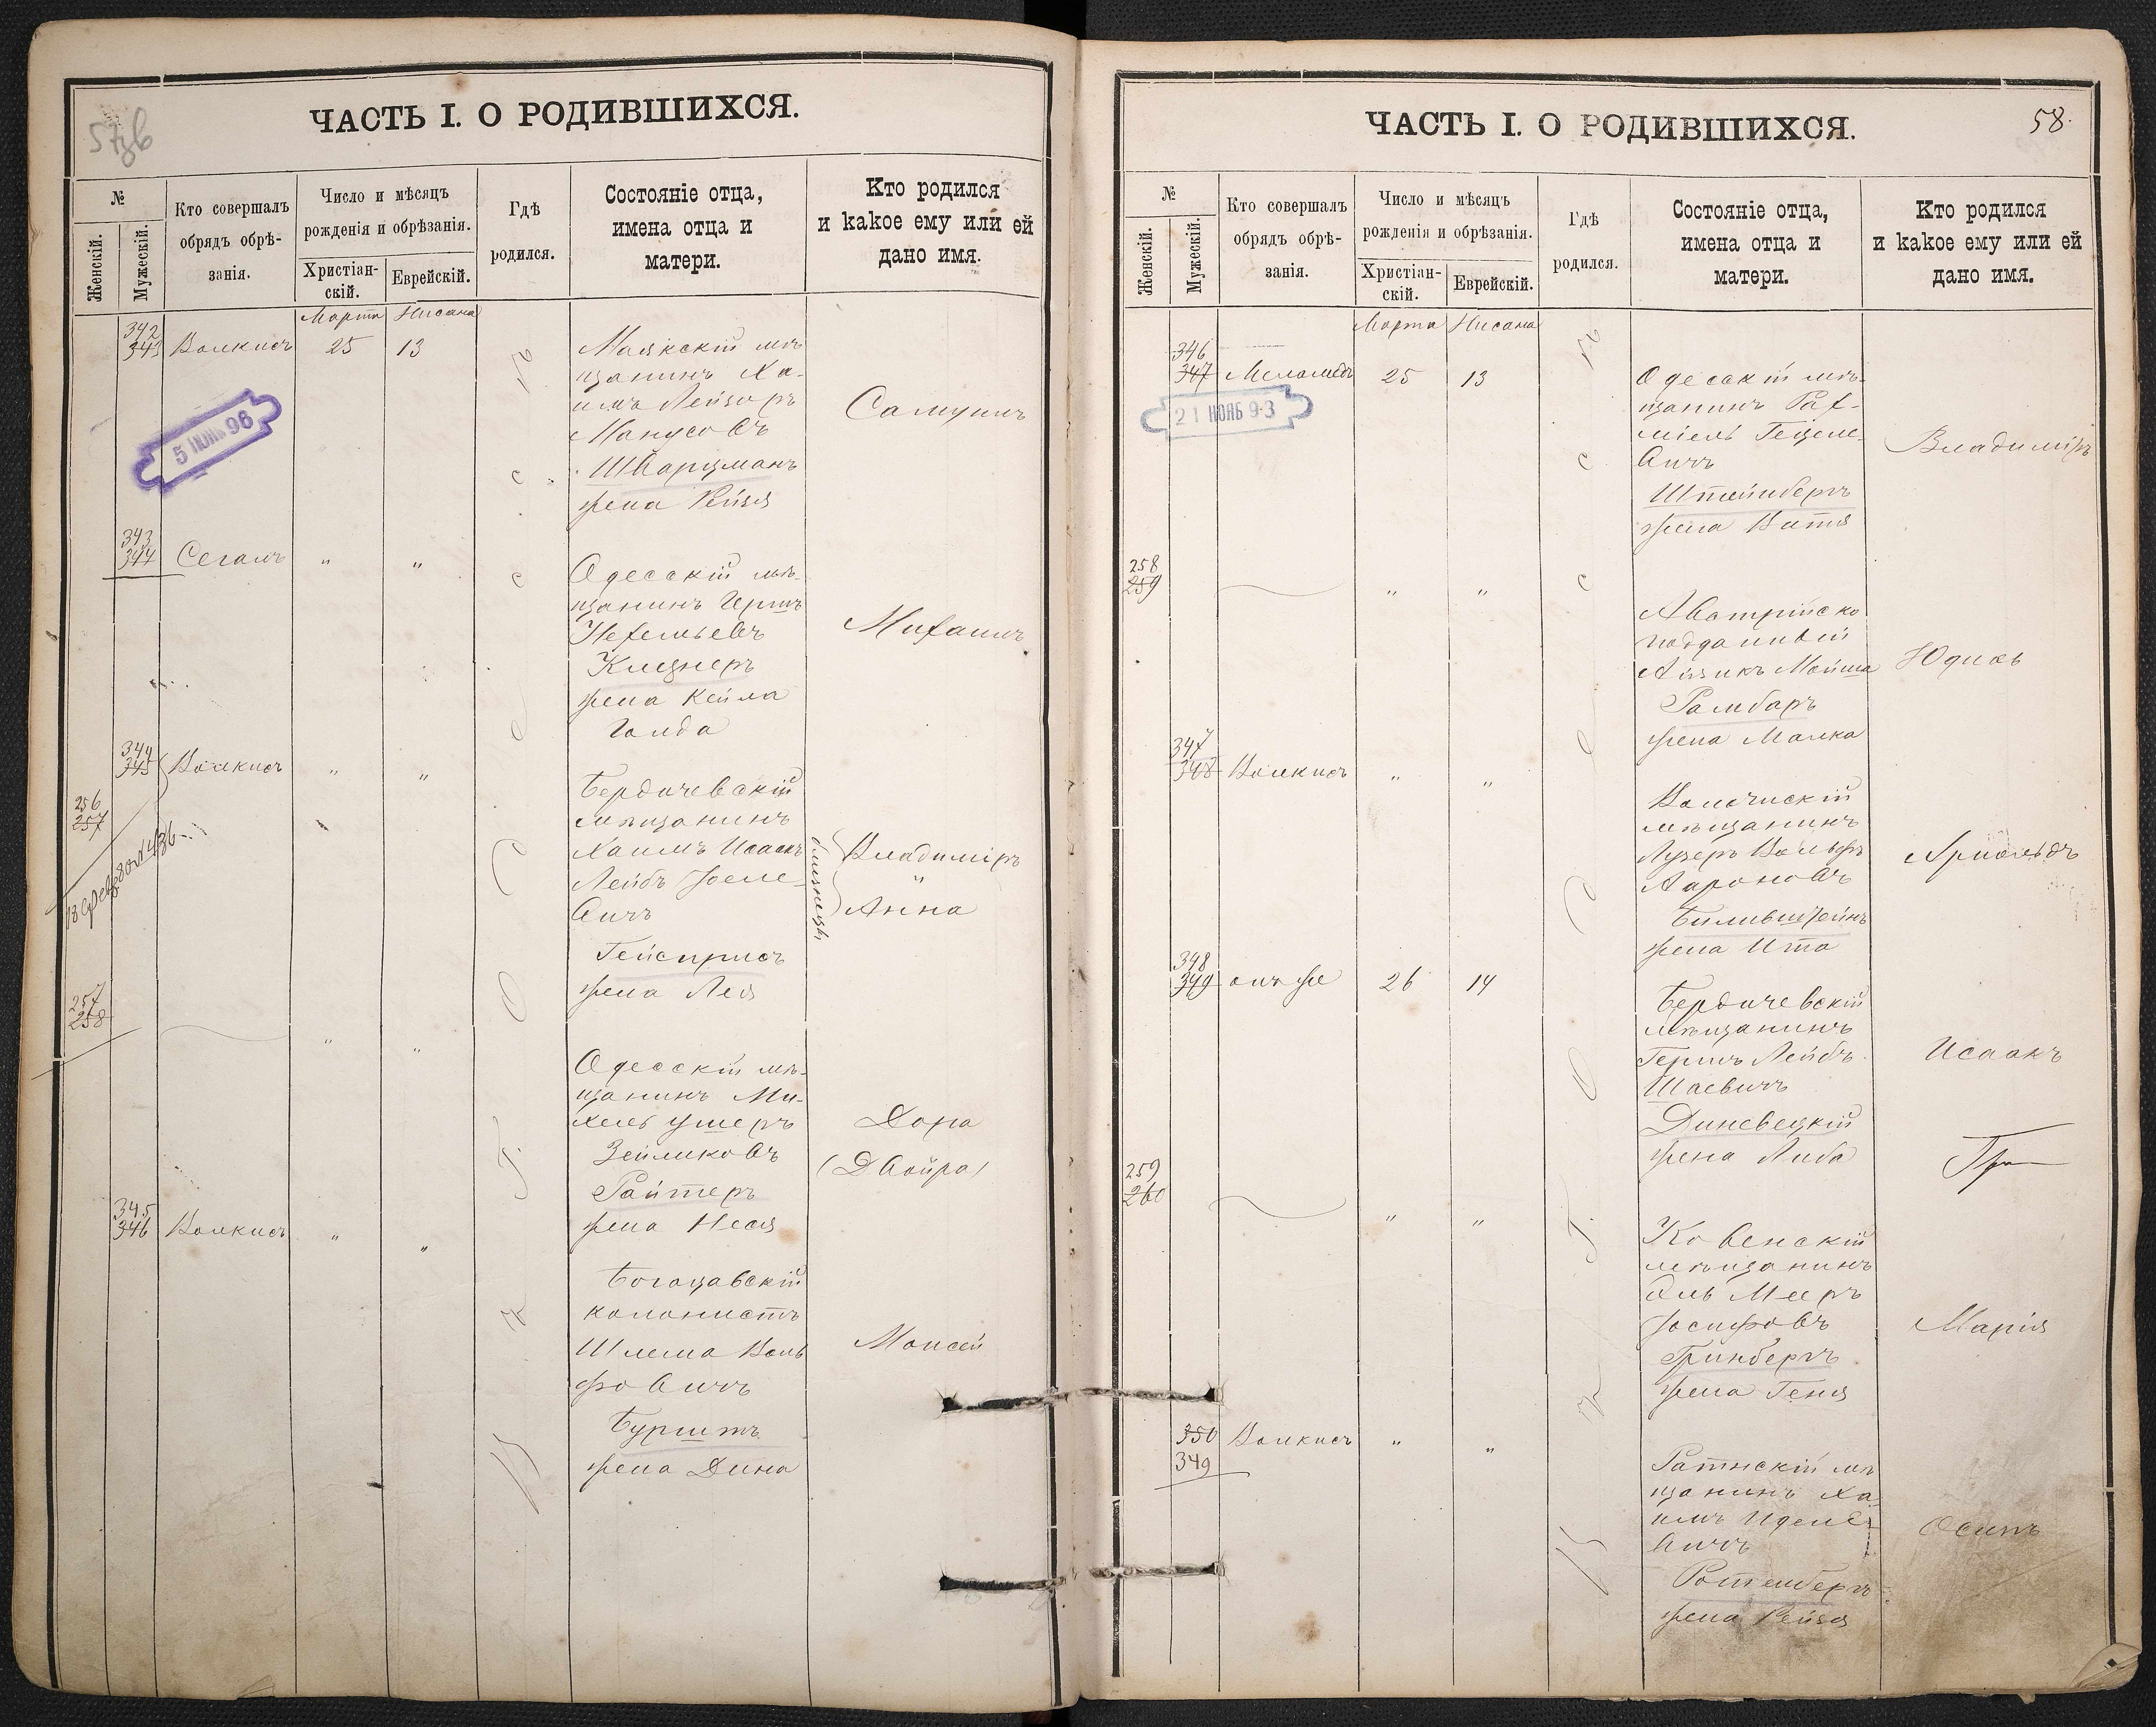 57зв
ЧАСТЬ I. О РОДИВШИХСЯ.
№
Женскій.
Мужескій.
Кто совершалъ
обрядъ обрѣ-
занія.
Число и мѣсяцъ
рожденія и обрѣзанія.
Христіан-
скій.
Еврейскій.
Гдѣ
родился.
Состояніе отца,
имена отца и
матери.
Кто родился
и какое ему или ей
дано имя.
Марта Нисана
342
343 Волкисъ 25 13
Маякскій мѣ-
щанинъ Ха-
имъ Лейзоръ
Манусовъ
Шварцманъ
жена Рейзя
Самуилъ
5 ИЮНЬ 96
343
344 Сегалъ " "
Одесскій мѣ-
щанинъ Гершъ
Нехемьевъ
Клецнеръ
жена Кейла
Голда
Михаилъ
344
345 Волкисъ " "
256
257
Бердичевскій
мѣщанинъ
Хаимъ Исаакъ
Лейбъ Іосе-
вичъ
жена Лея
близнецы
Владиміръ
"
Анна
257
258 " "
Одесскій мѣ-
щанинъ Ми-
хель Ушеръ
Зейликовъ
Райтеръ
жена Неся
Дора
(Двойра)
345
346 Волкисъ " "
колонистъ
Шлема Воль
фовичъ
Бурштъ
жена Дина
Моисей
въ г. Одессе
ЧАСТЬ I. О РОДИВШИХСЯ.
58.
№
Женскій.
Мужескій.
Кто совершалъ
обрядъ обрѣ-
занія.
Число и мѣсяцъ
рожденія и обрѣзанія.
Христіан-
скій.
Еврейскій.
Гдѣ
родился.
Состояніе отца,
имена отца и
матери.
Кто родился
и какое ему или ей
дано имя.
Марта Нисана
346
347 Меламедъ 25 13
21 НОЯБ 93
Одесскій мѣ-
щанинъ Рах-
міель Гецеле-
вичъ
Штейнбергъ
жена Батя
Владиміръ
258
259 " "
Австрійско
подданный
Айзикъ Мойша
Рамбаръ
жена Малка
Юдиөь
347
348 Волкисъ " "
мѣщанинъ
Лузеръ Вольфъ
Ароновъ
Бильштейнъ
жена Ита
Арнольдъ
348
349 онъ же 26 14
Бердичевскій
мѣщанинъ
Гершъ Лейбъ
Шаевичъ
Диневецкій
жена Либа
Исаакъ
259
260 " "
Ковенскій
мѣщанинъ
Мееръ
Іосифовъ
Гринбергъ
жена Геня
Марія
350 Волкисъ " "
349
Ратнскій мѣ
щанинъ Ха-
имъ Иделе-
вичъ
Ротенбергъ
жена Рейзя
Осипъ
въ г. Одессе